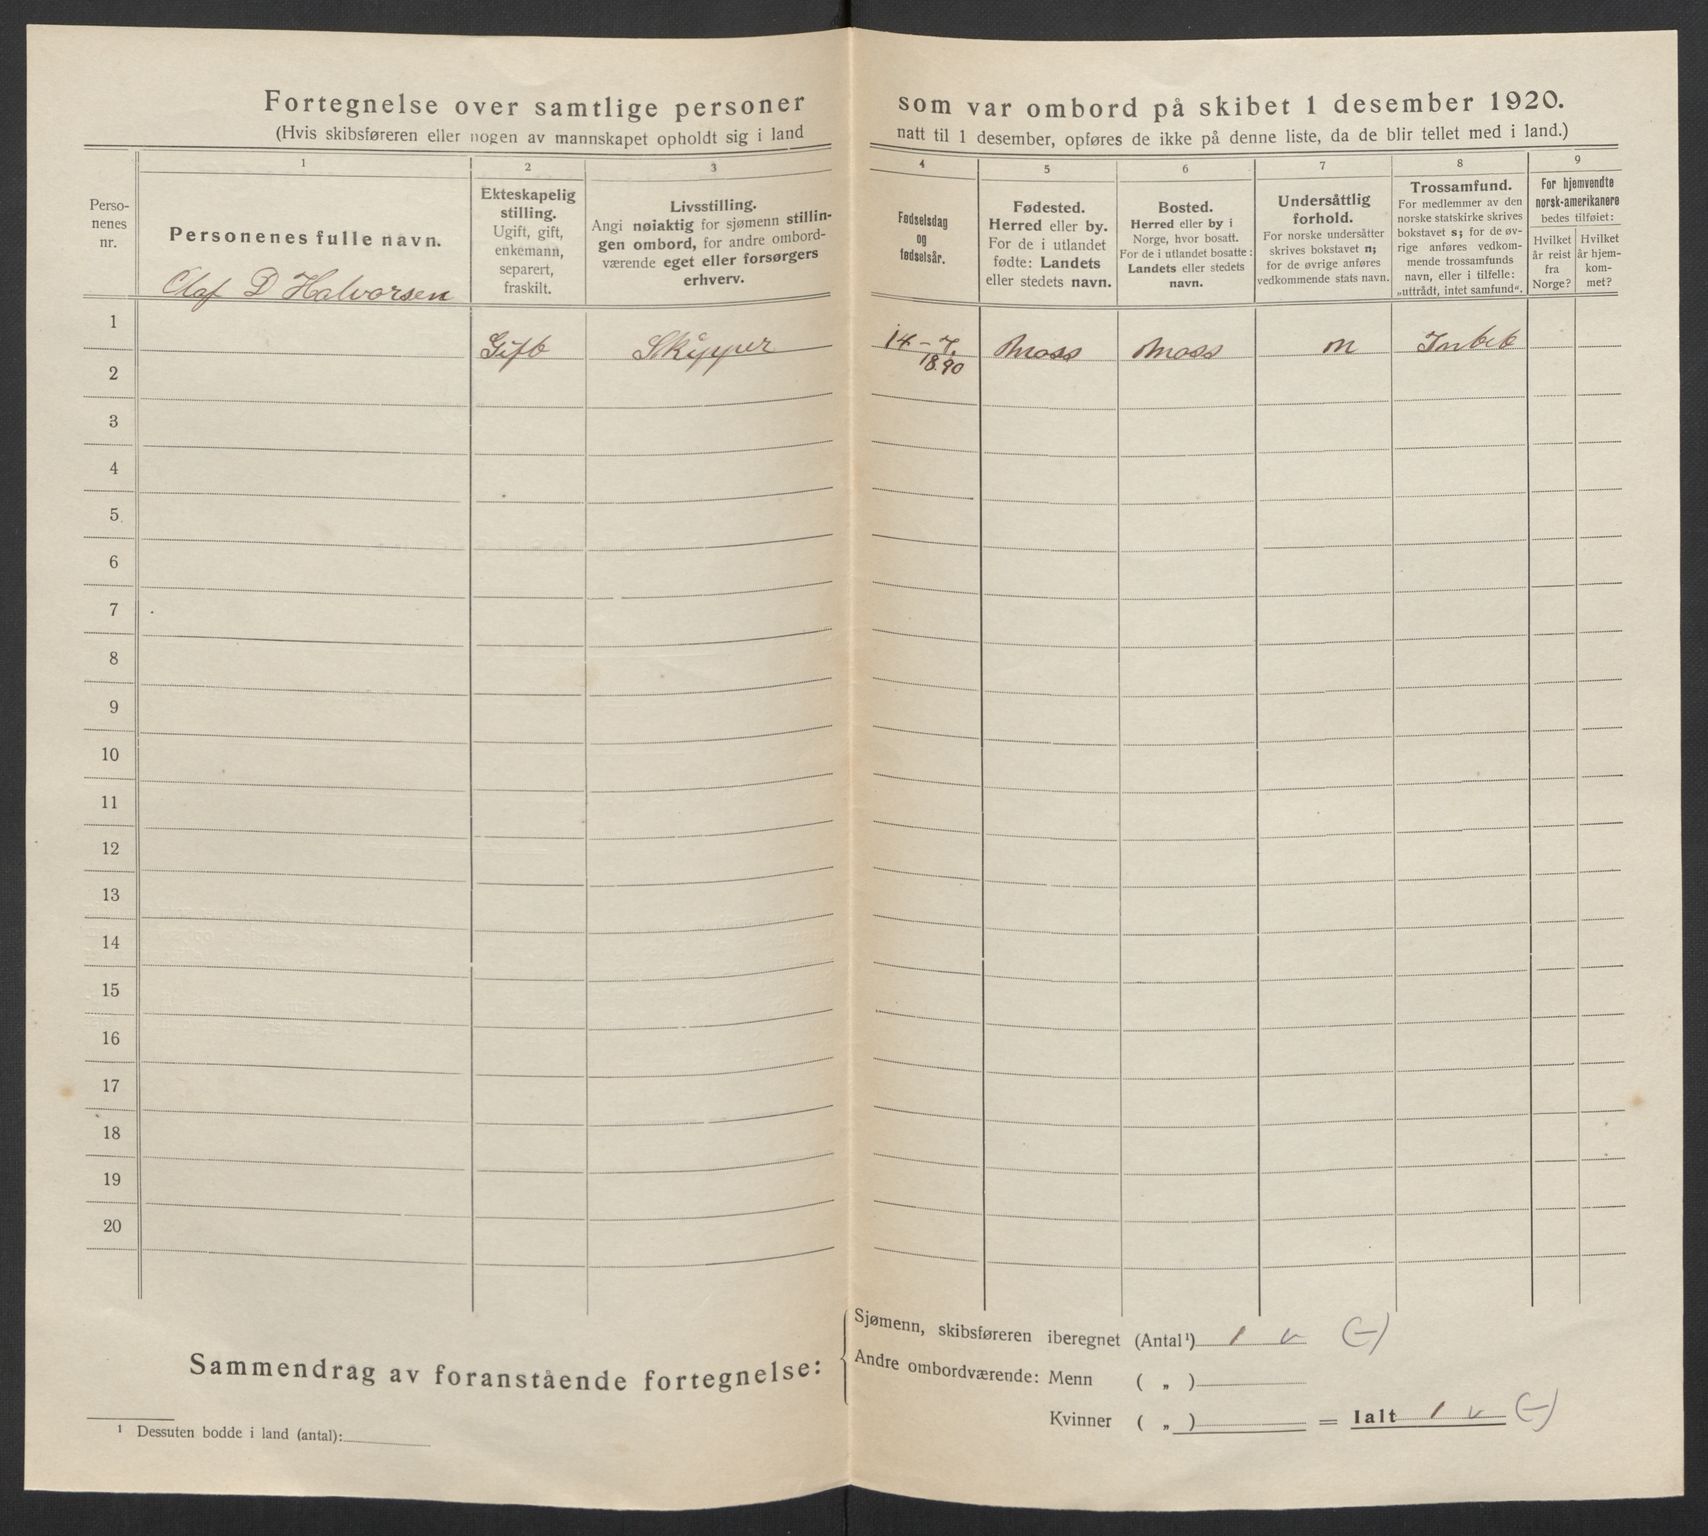 Fortegnelse over samtlige personer som var ombord på skibet 1 desember 1920.
(Hvis skibsføreren eller nogen av mannskapet opholdt sig i land natt til 1 desember, opføres de ikke på denne liste, da de blir tellet med i land.)
Perso-
nenes
nr.
1
Personenes fulle navn.
Olaf D Halvorsen
2
Ekteskapelig
stilling.
Ugift, gift,
enkemann,
separert,
fraskilt.
3
Livsstilling.
Angi nøiaktig for sjømenn stillin-
gen ombord, for andre ombord-
værende eget eller forsørgers
erhverv.
4
Fødselsdag
og
fødselsår.
5
Fødested.
Herred eller by.
For de i utlandet
fødte: Landets
eller stedets navn.
6
Bosted.
Herred eller by i
Norge, hvor bosatt.
For de i utlandet bosatte:
Landets eller stedets
navn.
7
Undersåttlig
forhold.
For norske undersåtter
skrives bokstavet n;
for de øvrige anføres
vedkommende stats navn.
8
Trossamfund.
For medlemmer av den
norske statskirke skrives
bokstavet s; for de øv-
rige anføres vedkom-
mende trossamfunds
navn, eller i tilfelle:
„uttrådt, intet samfund".
9
For hjemvendte
norsk-amerikanere
bedes tilføiet:
Hvilket
år reist
fra
Norge?
Hvilket
år hjem-
kom-
met?
1
Gift Skipper 14 - 7. Moss Moss n
1890
2
3
4
5
6
7
8
9
10
11
12
13
14
15
16
17
18
19
20
Sammendrag av foranstående fortegnelse:
Sjømenn, skibsføreren iberegnet (Antal¹) 1 v (-)
Andre ombordværende: Menn ( „ )
Kvinner ( „ ) = Ialt 1 v (-)
¹ Dessuten bodde i land (antal):